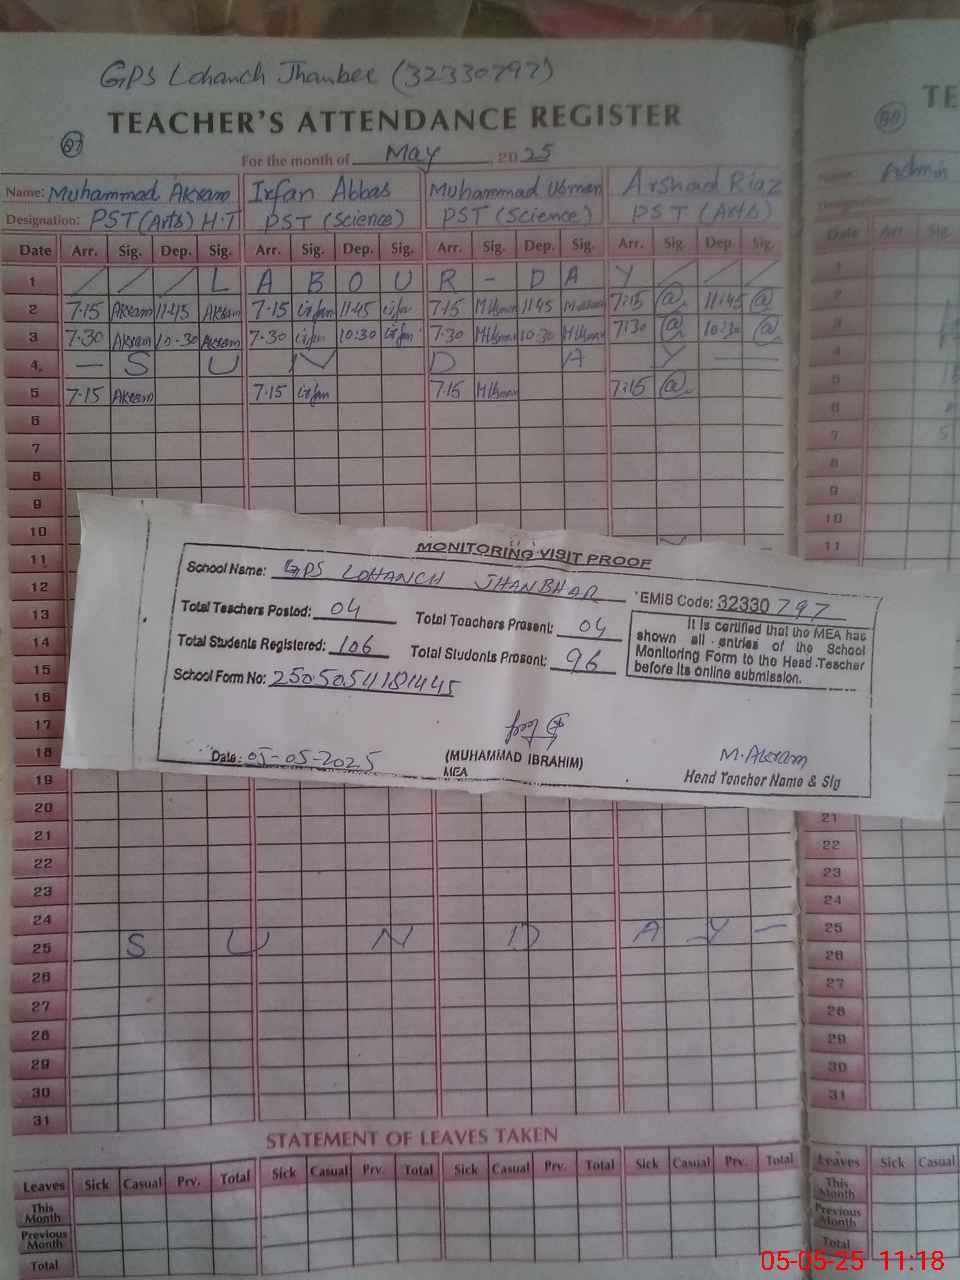 GPS Lohanch Jhanber (32330797)
TEACHER'S ATTENDANCE REGISTER
For the month of May 2025
Name: Muhammad Akram Irfan Abbas Muhammad Usman Arshad Riaz
Designation: PST (Arts) H.T PST (Science) PST (Science) PST (Arts)
Date Arr. Sig. Dep. Sig. Arr. Sig. Dep. Sig. Arr. Sig. Dep. Sig. Arr. Sig. Dep Sig.
1 / / / L A B O U R - D A Y / / /
2 7.15 Akram 11.45 Akram 7.15 Irfan 11.45 Irfan 7.15 MUsman 11.45 MUsman 7:15 @ 11:45 @
3 7.30 Akram 10.30 Akram 7.30 Irfan 10.30 Irfan 7.30 MUsman 10.30 MUsman 7:30 @ 10:30 @
4 — S U N D A Y — —
5 7.15 Akram 7.15 Irfan 7.15 MUsman 7:15 @
6
7
8
9
10
11
12
13
14
15
16
17
18
19
20
21
22
23
24
25 S U N D A Y —
26
27
28
29
30
31
MONITORING VISIT PROOF
School Name: GPS LOHANCH JHANBHAR EMIS Code: 32330797
Total Teachers Posted: 04 Total Teachers Present: 04
Total Students Registered: 106 Total Students Present: 96
It is certified that the MEA has
shown all entries of the School
Monitoring Form to the Head Teacher
before its online submission.
School Form No: 2505054181445
Date: 05-05-2025 (MUHAMMAD IBRAHIM)
MEA
M. Akram
Head Teacher Name & Sig
STATEMENT OF LEAVES TAKEN
Leaves Sick Casual Prv. Total Sick Casual Prv. Total Sick Casual Prv. Total Sick Casual Prv. Total
This Month
Previous Month
Total
TE
Admin
Date Arr Sig.
1
2
3
4
5
6
7
8
9
10
11
21
22
23
24
25
26
27
28
29
30
31
Leaves Sick Casual
This Month
Previous Month
Total
05-05-25 11:18